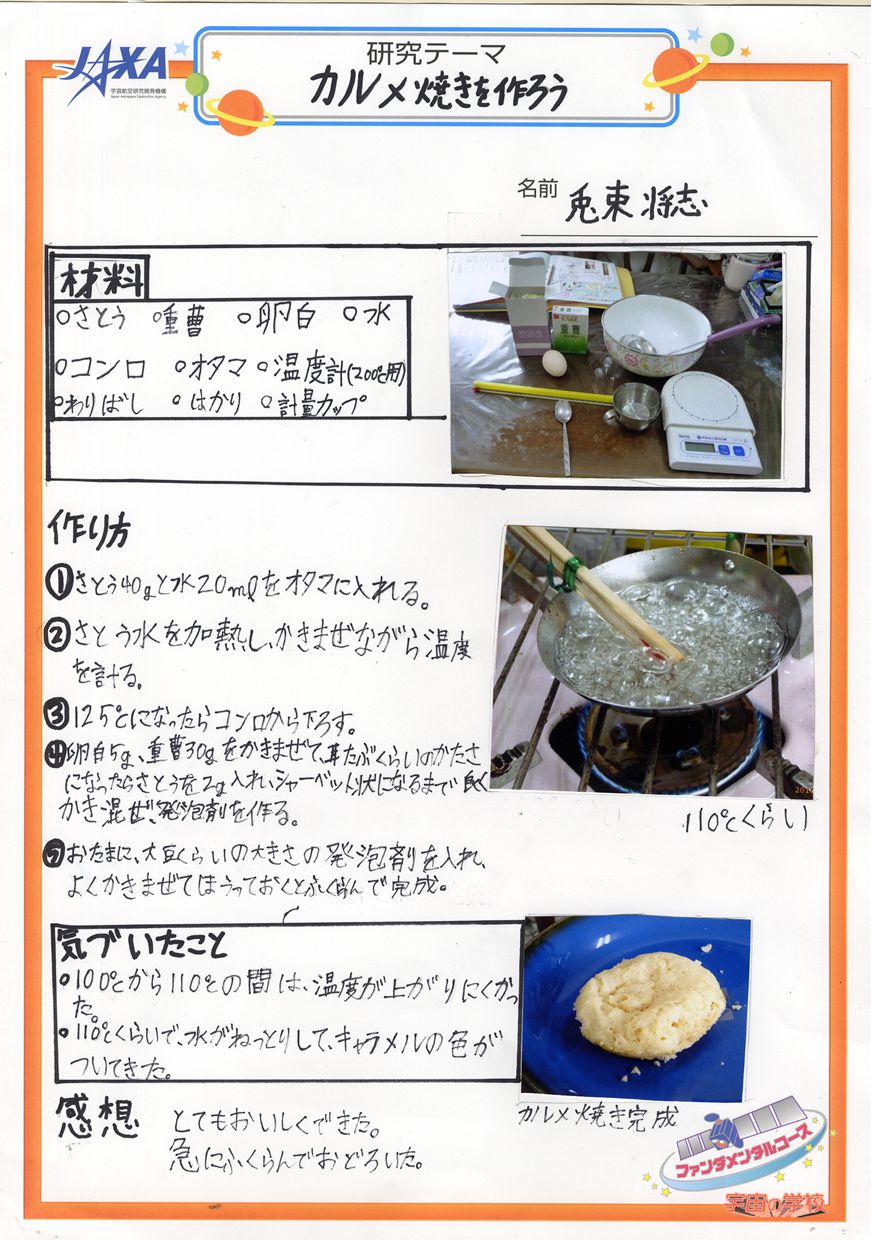 JAXA
宇宙航空研究開発機構
Japan Aerospace Exploration Agency
研究テーマ
カルメ焼きを作ろう
名前 兎束 将志
材料
○さとう ○重曹 ○卵白 ○水
○コンロ ○オタマ ○温度計(200℃用)
○わりばし ○はかり ○計量カップ
重曹
作り方
①さとう40gと水20mlをオタマに入れる。
②さとう水を加熱し、かきまぜながら温度
を計る。
③125℃になったらコンロから下ろす。
④卵白5g、重曹30gをかきまぜて、耳たぶくらいのかたさ
になったらさとうを2g入れ、シャーベット状になるまで良く
かき混ぜ、発泡剤を作る。
110℃くらい
⑤おたまに、大豆くらいの大きさの発泡剤を入れ、
よくかきまぜてほうっておくとふくらんで完成。
気づいたこと
○100℃から110℃の間は、温度が上がりにくかっ
た。
○110℃くらいで、水がねっとりして、キャラメルの色が
ついてきた。
カルメ焼き完成
感想 とてもおいしくできた。
急にふくらんでおどろいた。
ファンダメンタルコース
宇宙の学校